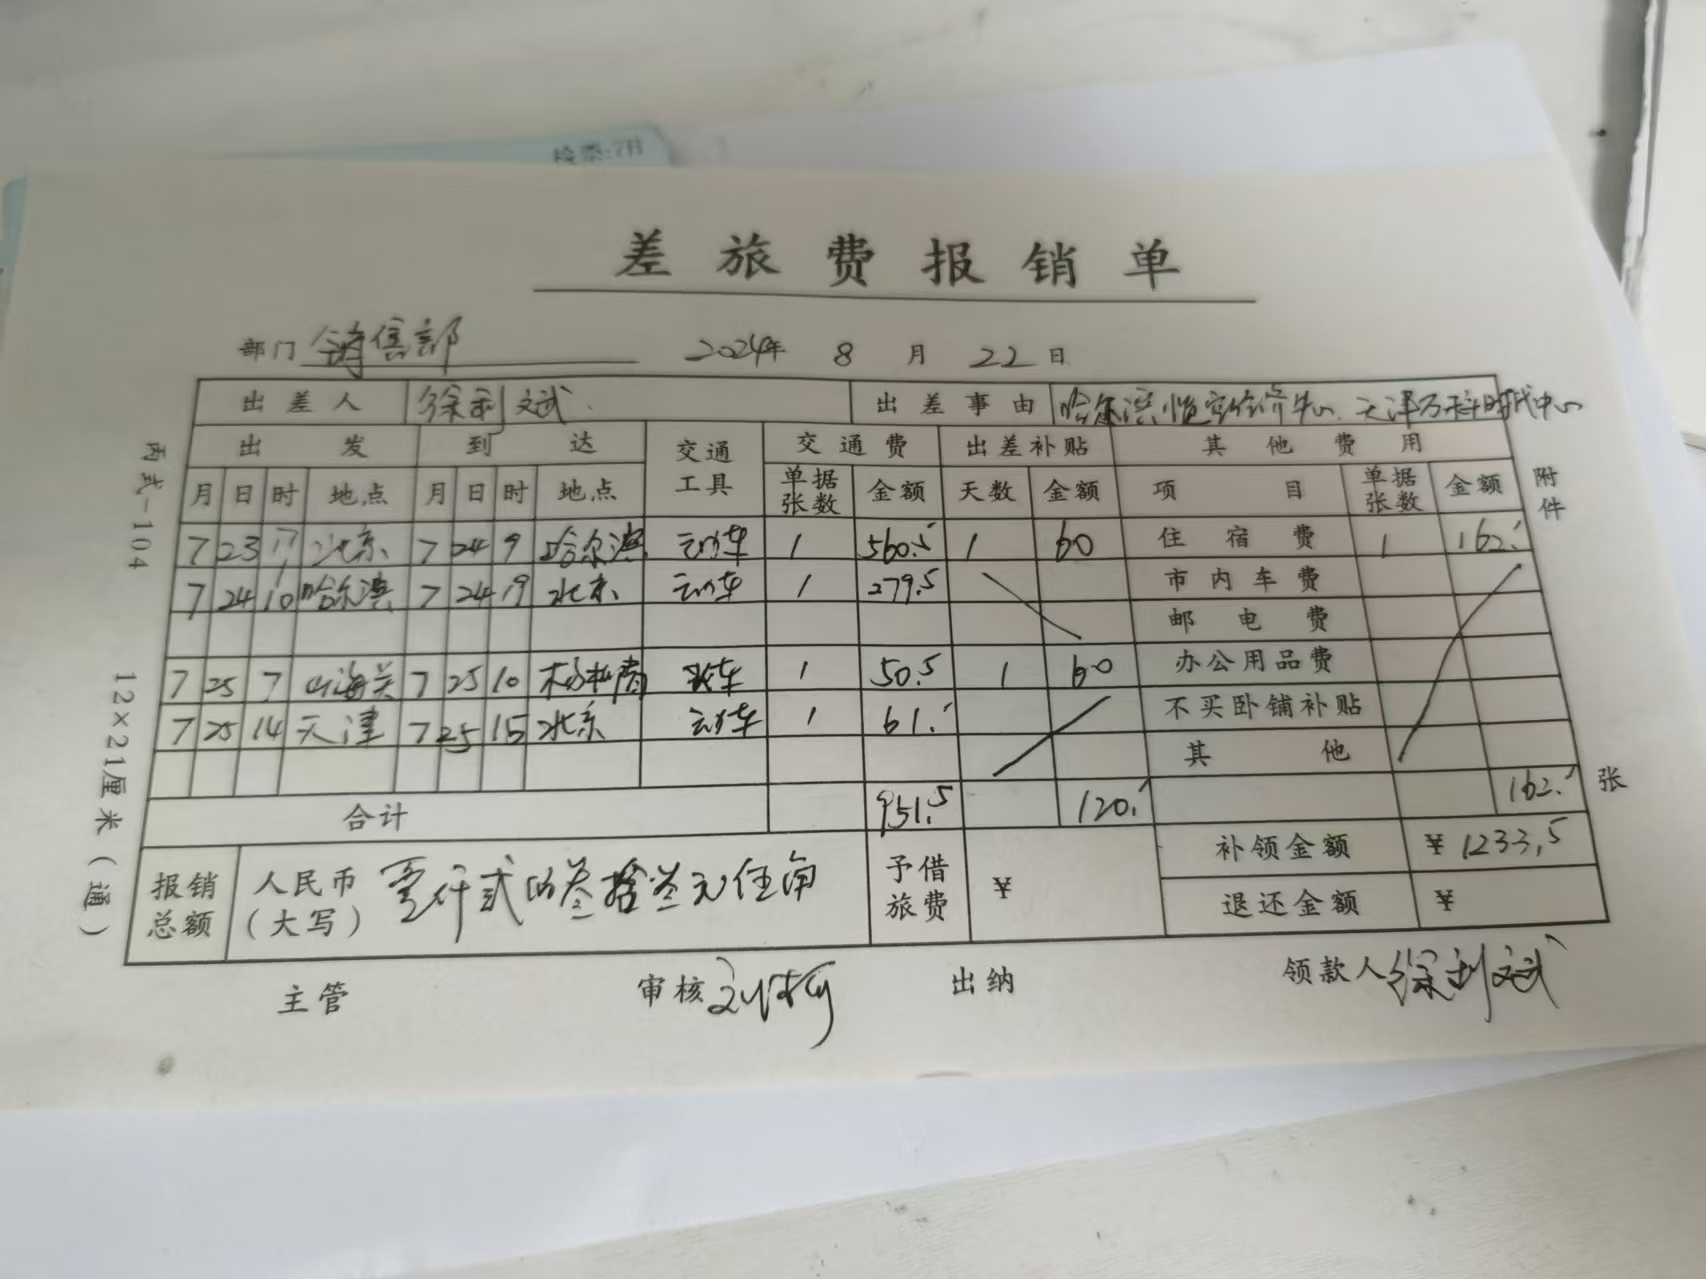 检票:7B
差旅费报销单
部门 销售部 2024年 8 月 22 日
出差人 徐利斌 出差事由 哈尔滨恒大经济中心、天津万科时代中心
出发 到达 交通工具 交通费 出差补贴 其他费用
月 日 时 地点 月 日 时 地点 单据张数 金额 天数 金额 项目 单据张数 金额
7 23 17 北京 7 24 9 哈尔滨 动车 1 560.5 1 60 住宿费 1 162.-
7 24 10 哈尔滨 7 24 19 北京 动车 1 279.5 市内车费
邮电费
7 25 7 山海关 7 25 10 杨柳青 火车 1 50.5 1 60 办公用品费
7 25 14 天津 7 25 15 北京 动车 1 61.- 不买卧铺补贴
其他
合计 951.5 120.- 162.-
报销总额 人民币(大写) 壹仟贰佰叁拾叁元伍角 予借旅费 ¥ 补领金额 ¥1233.5
退还金额 ¥
主管 审核 出纳 领款人 徐利斌
丙式-104 12×21厘米(通)
附件 张